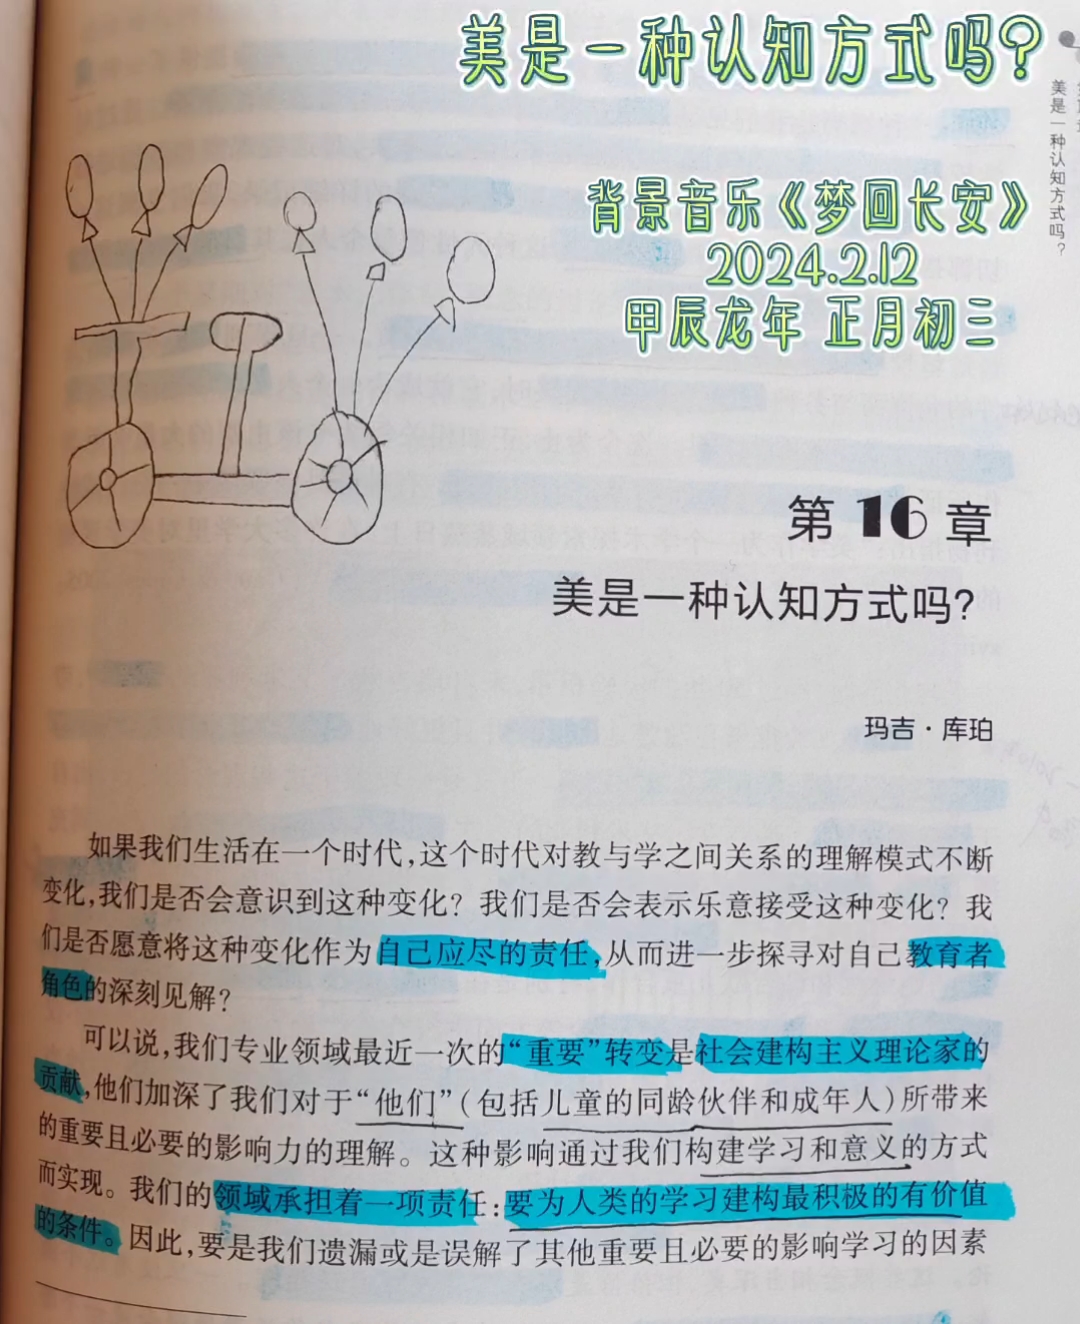 美是一种认知方式吗?
美是一种认知方式吗?
背景音乐《梦回长安》
2024.2.12
甲辰龙年 正月初三
第16章
美是一种认知方式吗?
玛吉·库珀
如果我们生活在一个时代,这个时代对教与学之间关系的理解模式不断
变化,我们是否会意识到这种变化?我们是否会表示乐意接受这种变化?我
们是否愿意将这种变化作为自己应尽的责任,从而进一步探寻对自己教育者
角色的深刻见解?
可以说,我们专业领域最近一次的“重要”转变是社会建构主义理论家的
贡献,他们加深了我们对于“他们”(包括儿童的同龄伙伴和成年人)所带来
的重要且必要的影响力的理解。这种影响通过我们构建学习和意义的方式
而实现。我们的领域承担着一项责任:要为人类的学习建构最积极的有价值
的条件。因此,要是我们遗漏或是误解了其他重要且必要的影响学习的因素